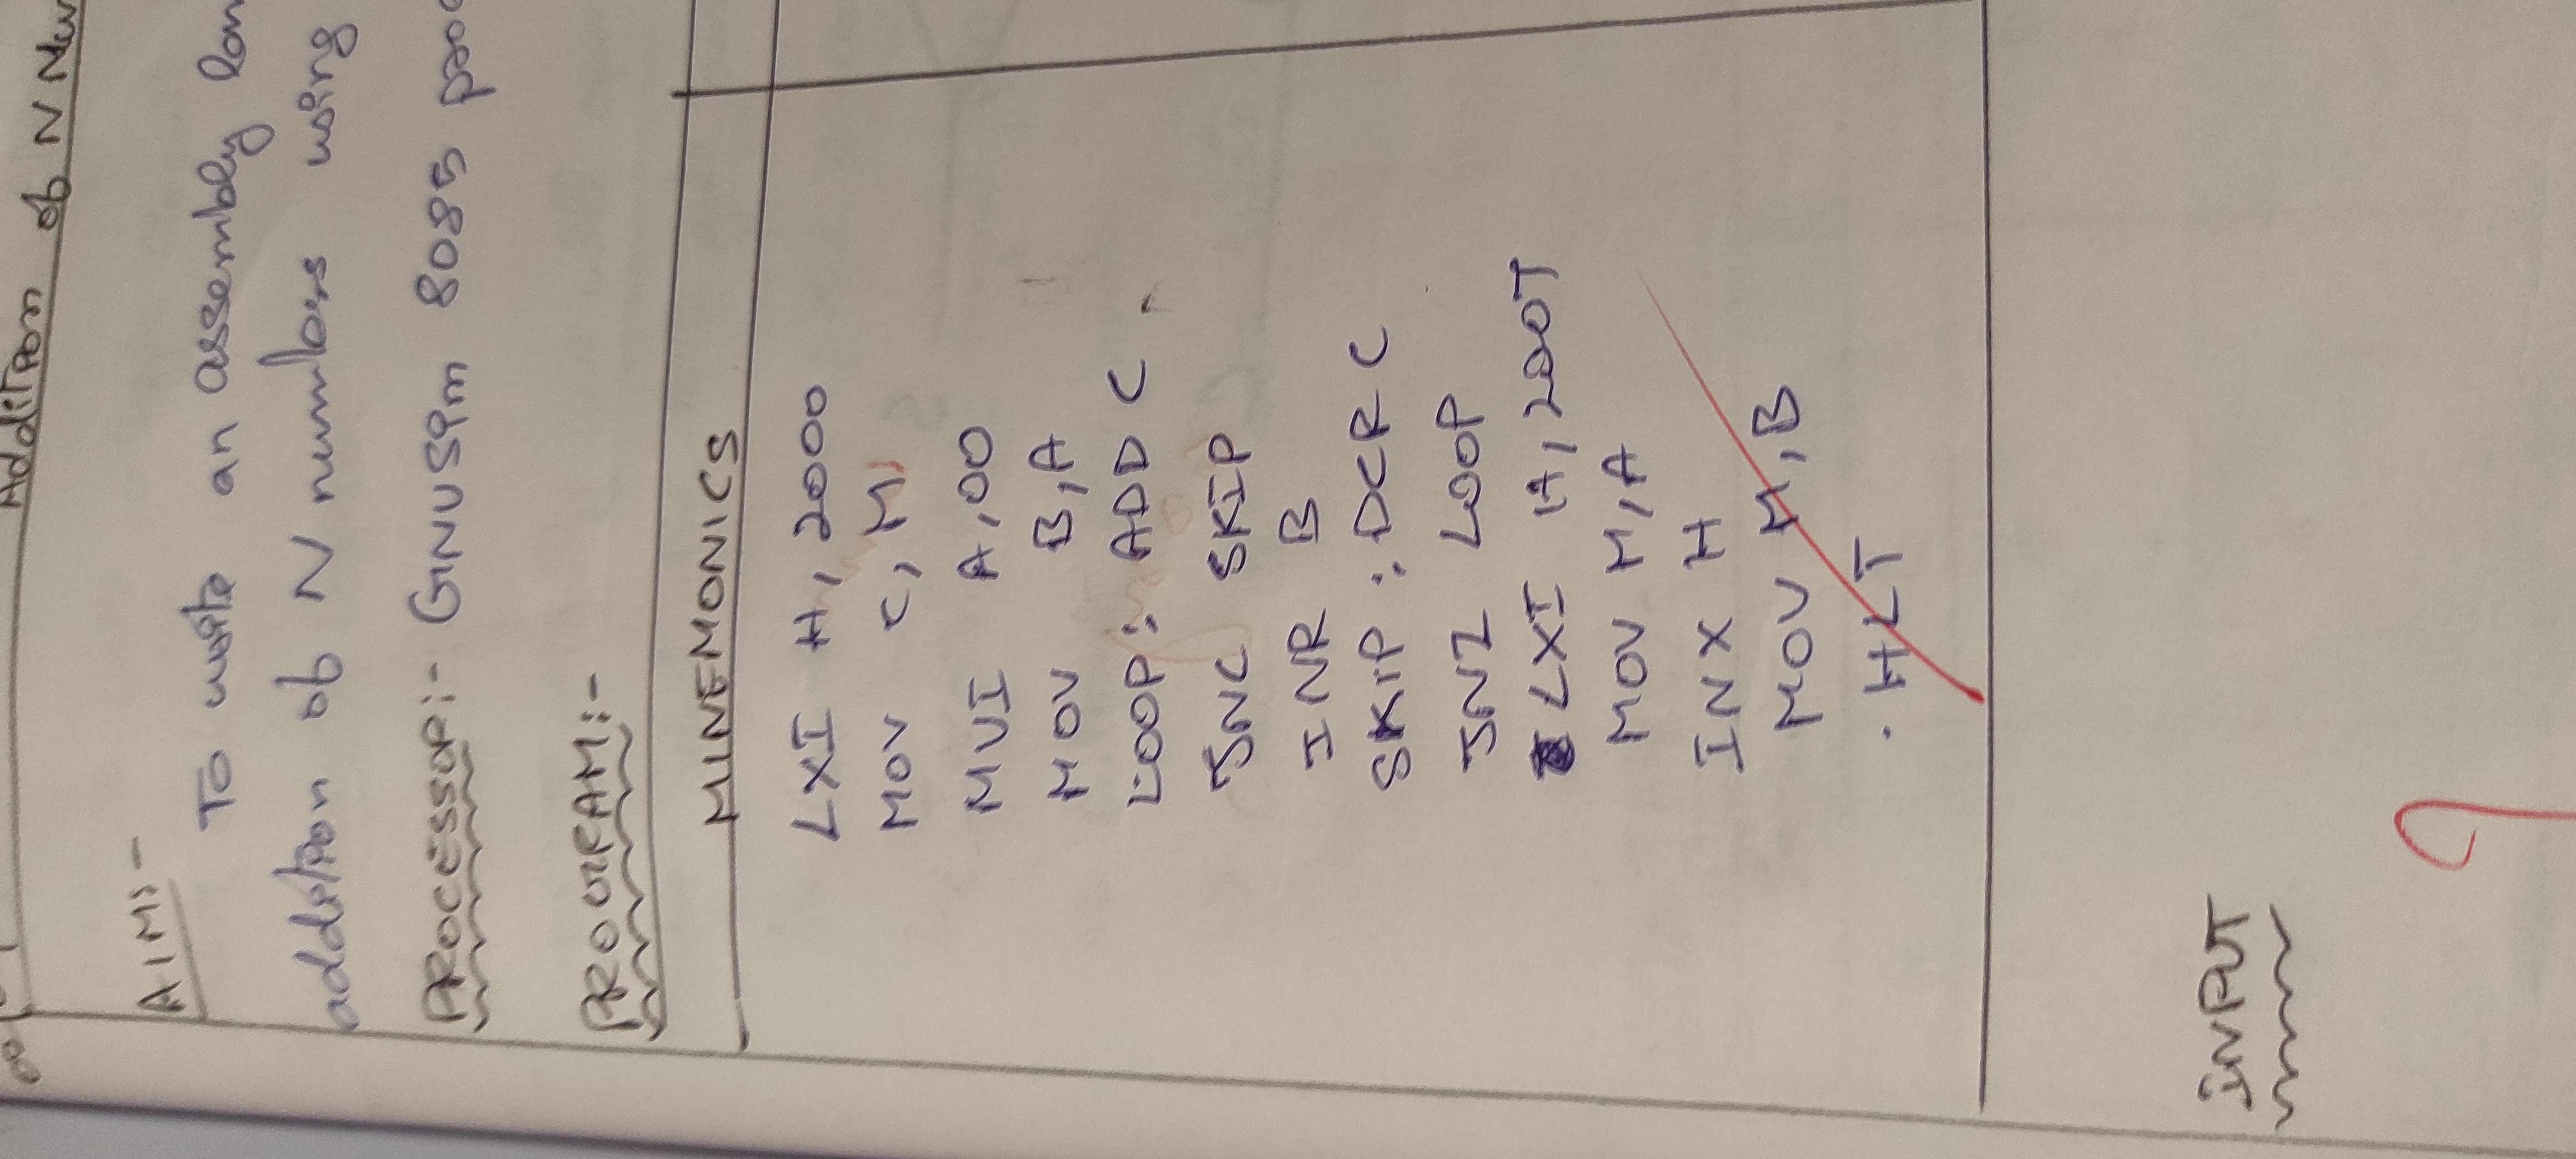 Addition of N
AIM:-
To write an assembly
addition of N numbers using
PROCESSOR:- GNUSim 8085
PROGRAM:-
MINEMONICS
LXI H, 2000
MOV C, M
MVI A, 00
MOV B, A
LOOP: ADD C
JNC SKIP
INR B
SKIP: DCR C
JNZ LOOP
LXI H, 2007
MOV M, A
INX H
MOV M, B
HLT
INPUT